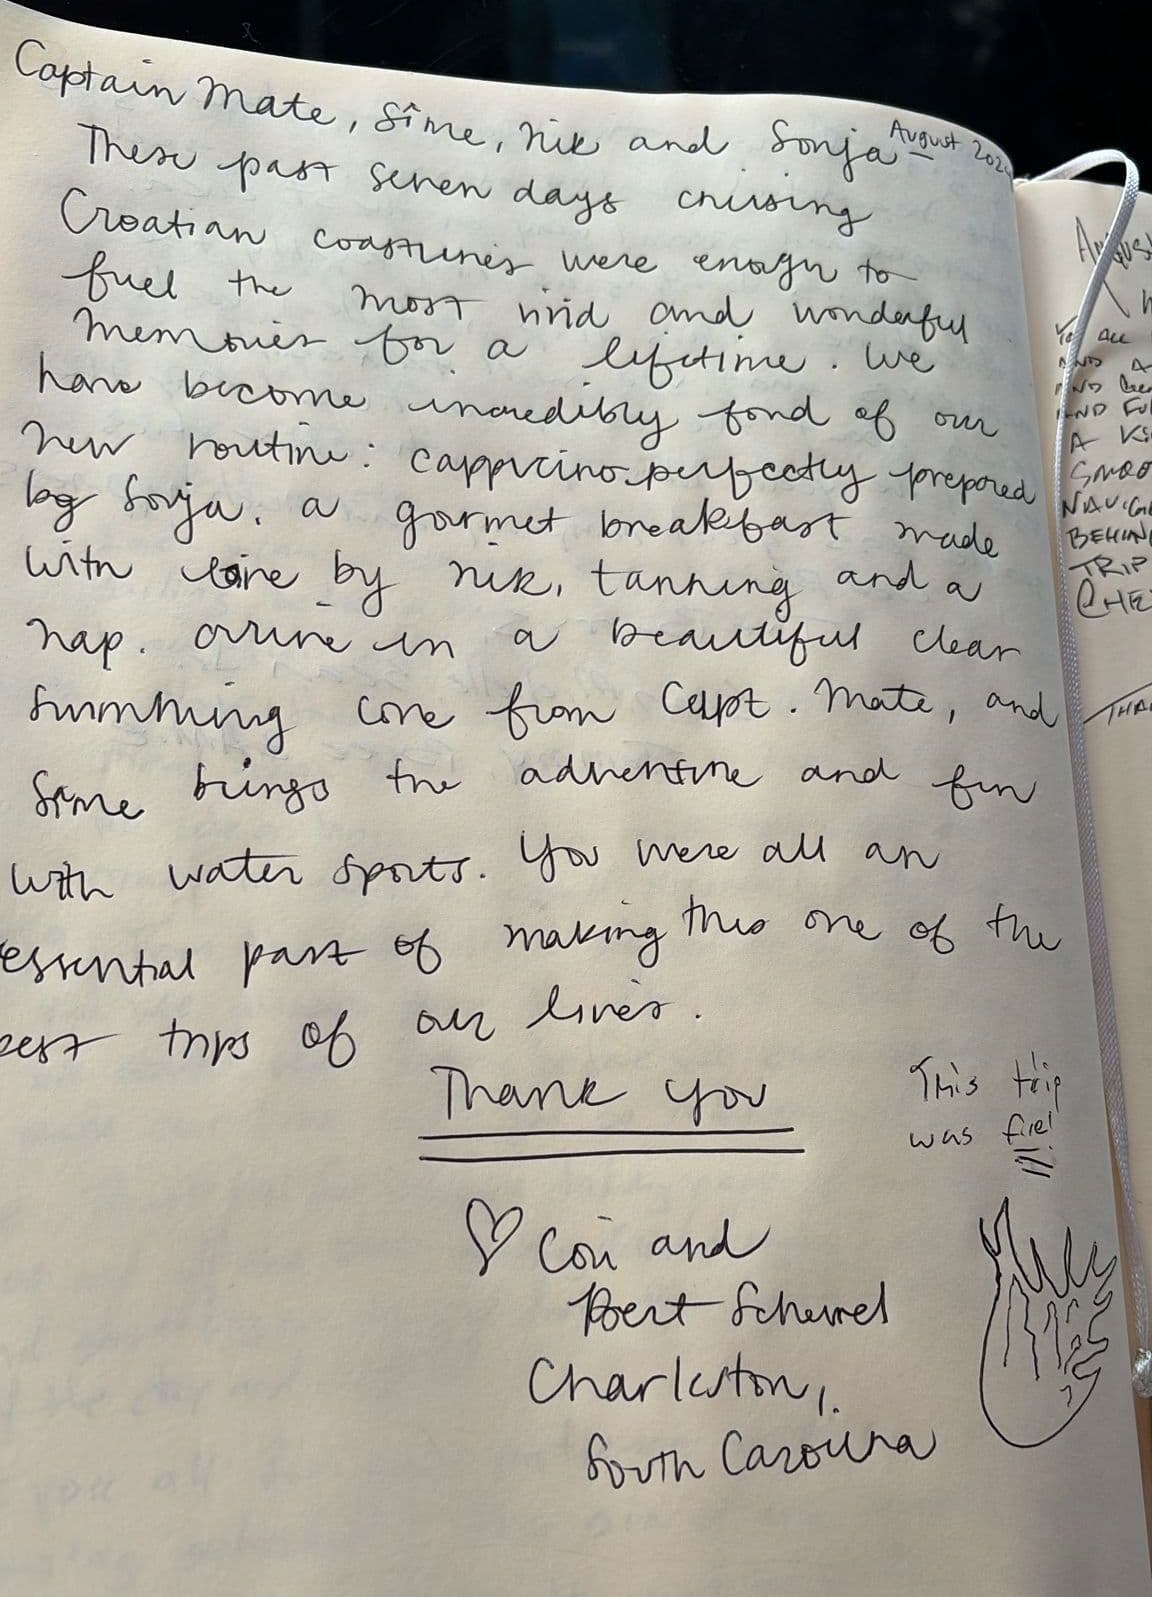 Captain Mate, Sîme, Nik and Sonja –
August 202
These past seven days cruising
Croatian coastlines were enough to
fuel the most vivid and wonderful
memories for a lifetime. We
have become incredibly fond of our
new routine: cappucino perfectly prepared
by Sonja. a gourmet breakfast made
with love by Nik, tanning and a
nap. arrive in a beautiful clear
swimming cove from Capt. Mate, and
Sime brings the adventure and fun
with water sports. You were all an
essential part of making this one of the
best trips of our lives.
Thank you
This trip
was fire!
♡ Cori and
Bert
Charleston,
South Carolina
August
To ALL
AND A
AND
AND FU
A
SMOO
NAVIGA
BEHIN
TRIP
CHE
THA